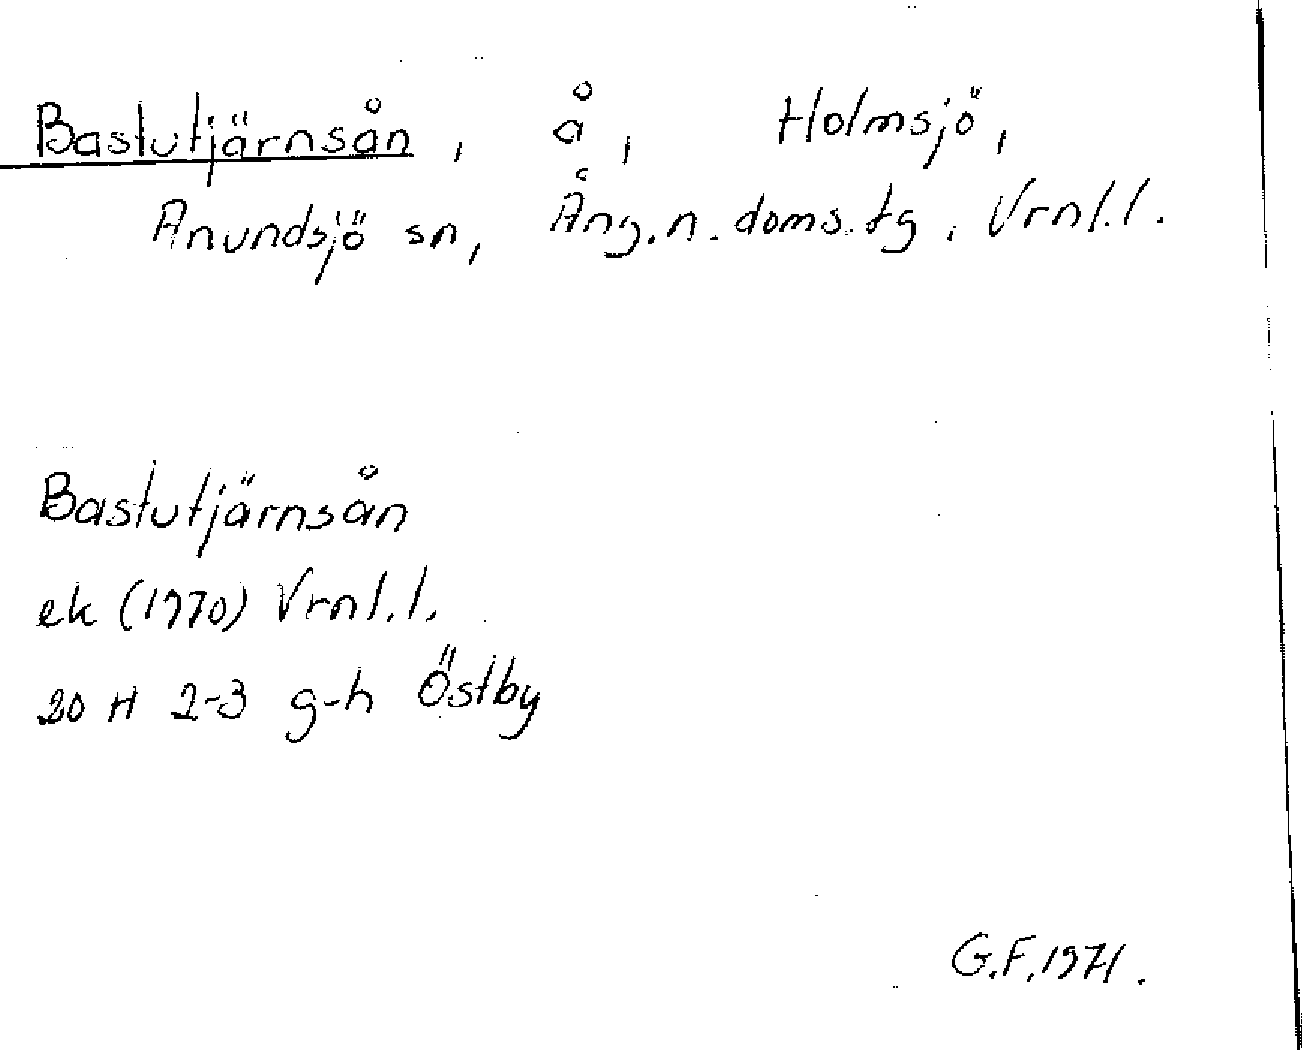 Bastutjärnsån, å, Holmsjö,
Anundsjö sn, Ång.n.doms.tg, Vrnl.l.
Bastutjärnsån
ek (1970) Vrnl.l.
20 H 2-3 g-h Östby
G.F.1971.